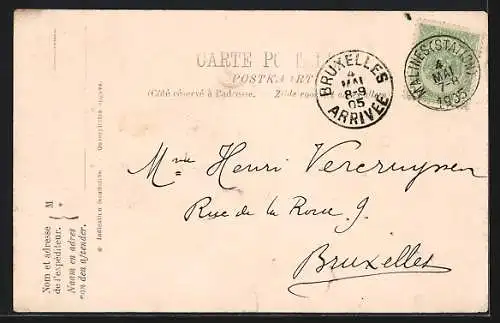 CARTE POSTALE
POSTKAART
(Côté réservé à l'adresse. Zijde voor
BRUXELLES
4
MAI
8-9
05
ARRIVÉE
MALINES (STATION)
4
MAI
7-8
1905
Mme Henri Vercruyssen
Rue de la Roue 9.
Bruxelles
Nom et adresse
de l'expéditeur.
M
Naam en adres
van den afzender.
* Indication facultative.